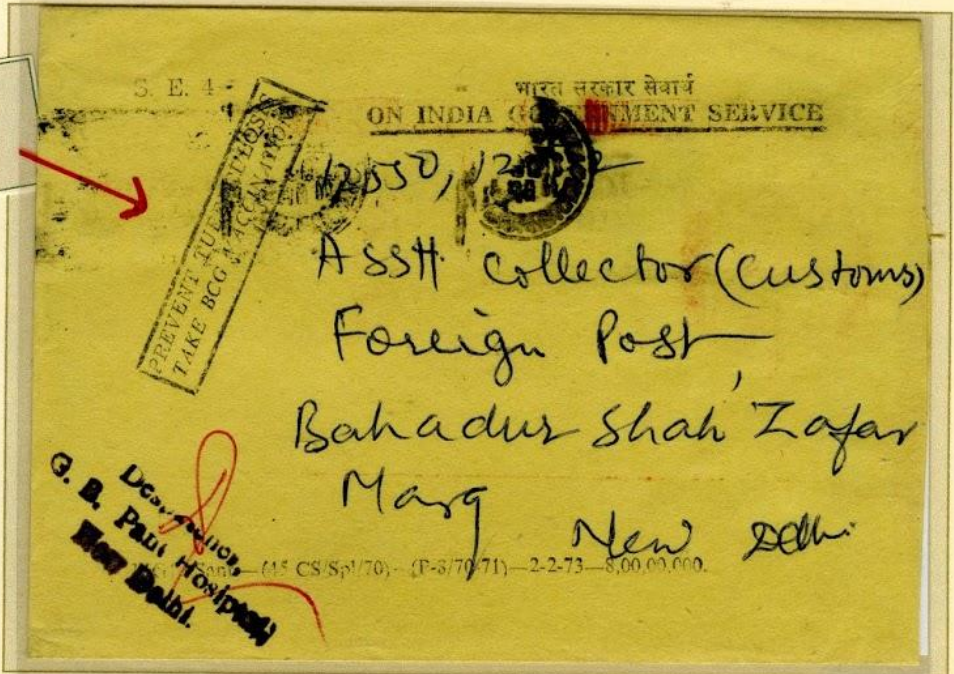 S. E. 4
भारत सरकार सेवार्थ
ON INDIA GOVERNMENT SERVICE
PREVENT TUBERCULOSIS
TAKE BCG VACCINATION
Asstt. Collector (Customs)
Foreign Post,
Bahadur Shah Zafar
Marg
New Delhi
G. B. Pant Hosiptal,
New Delhi.
(45 CS/Spl/70)—(P-8/70-71)—2-2-73—8,00,00,000.